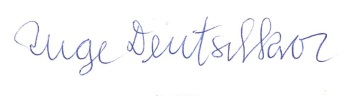 Inge Deutschkron